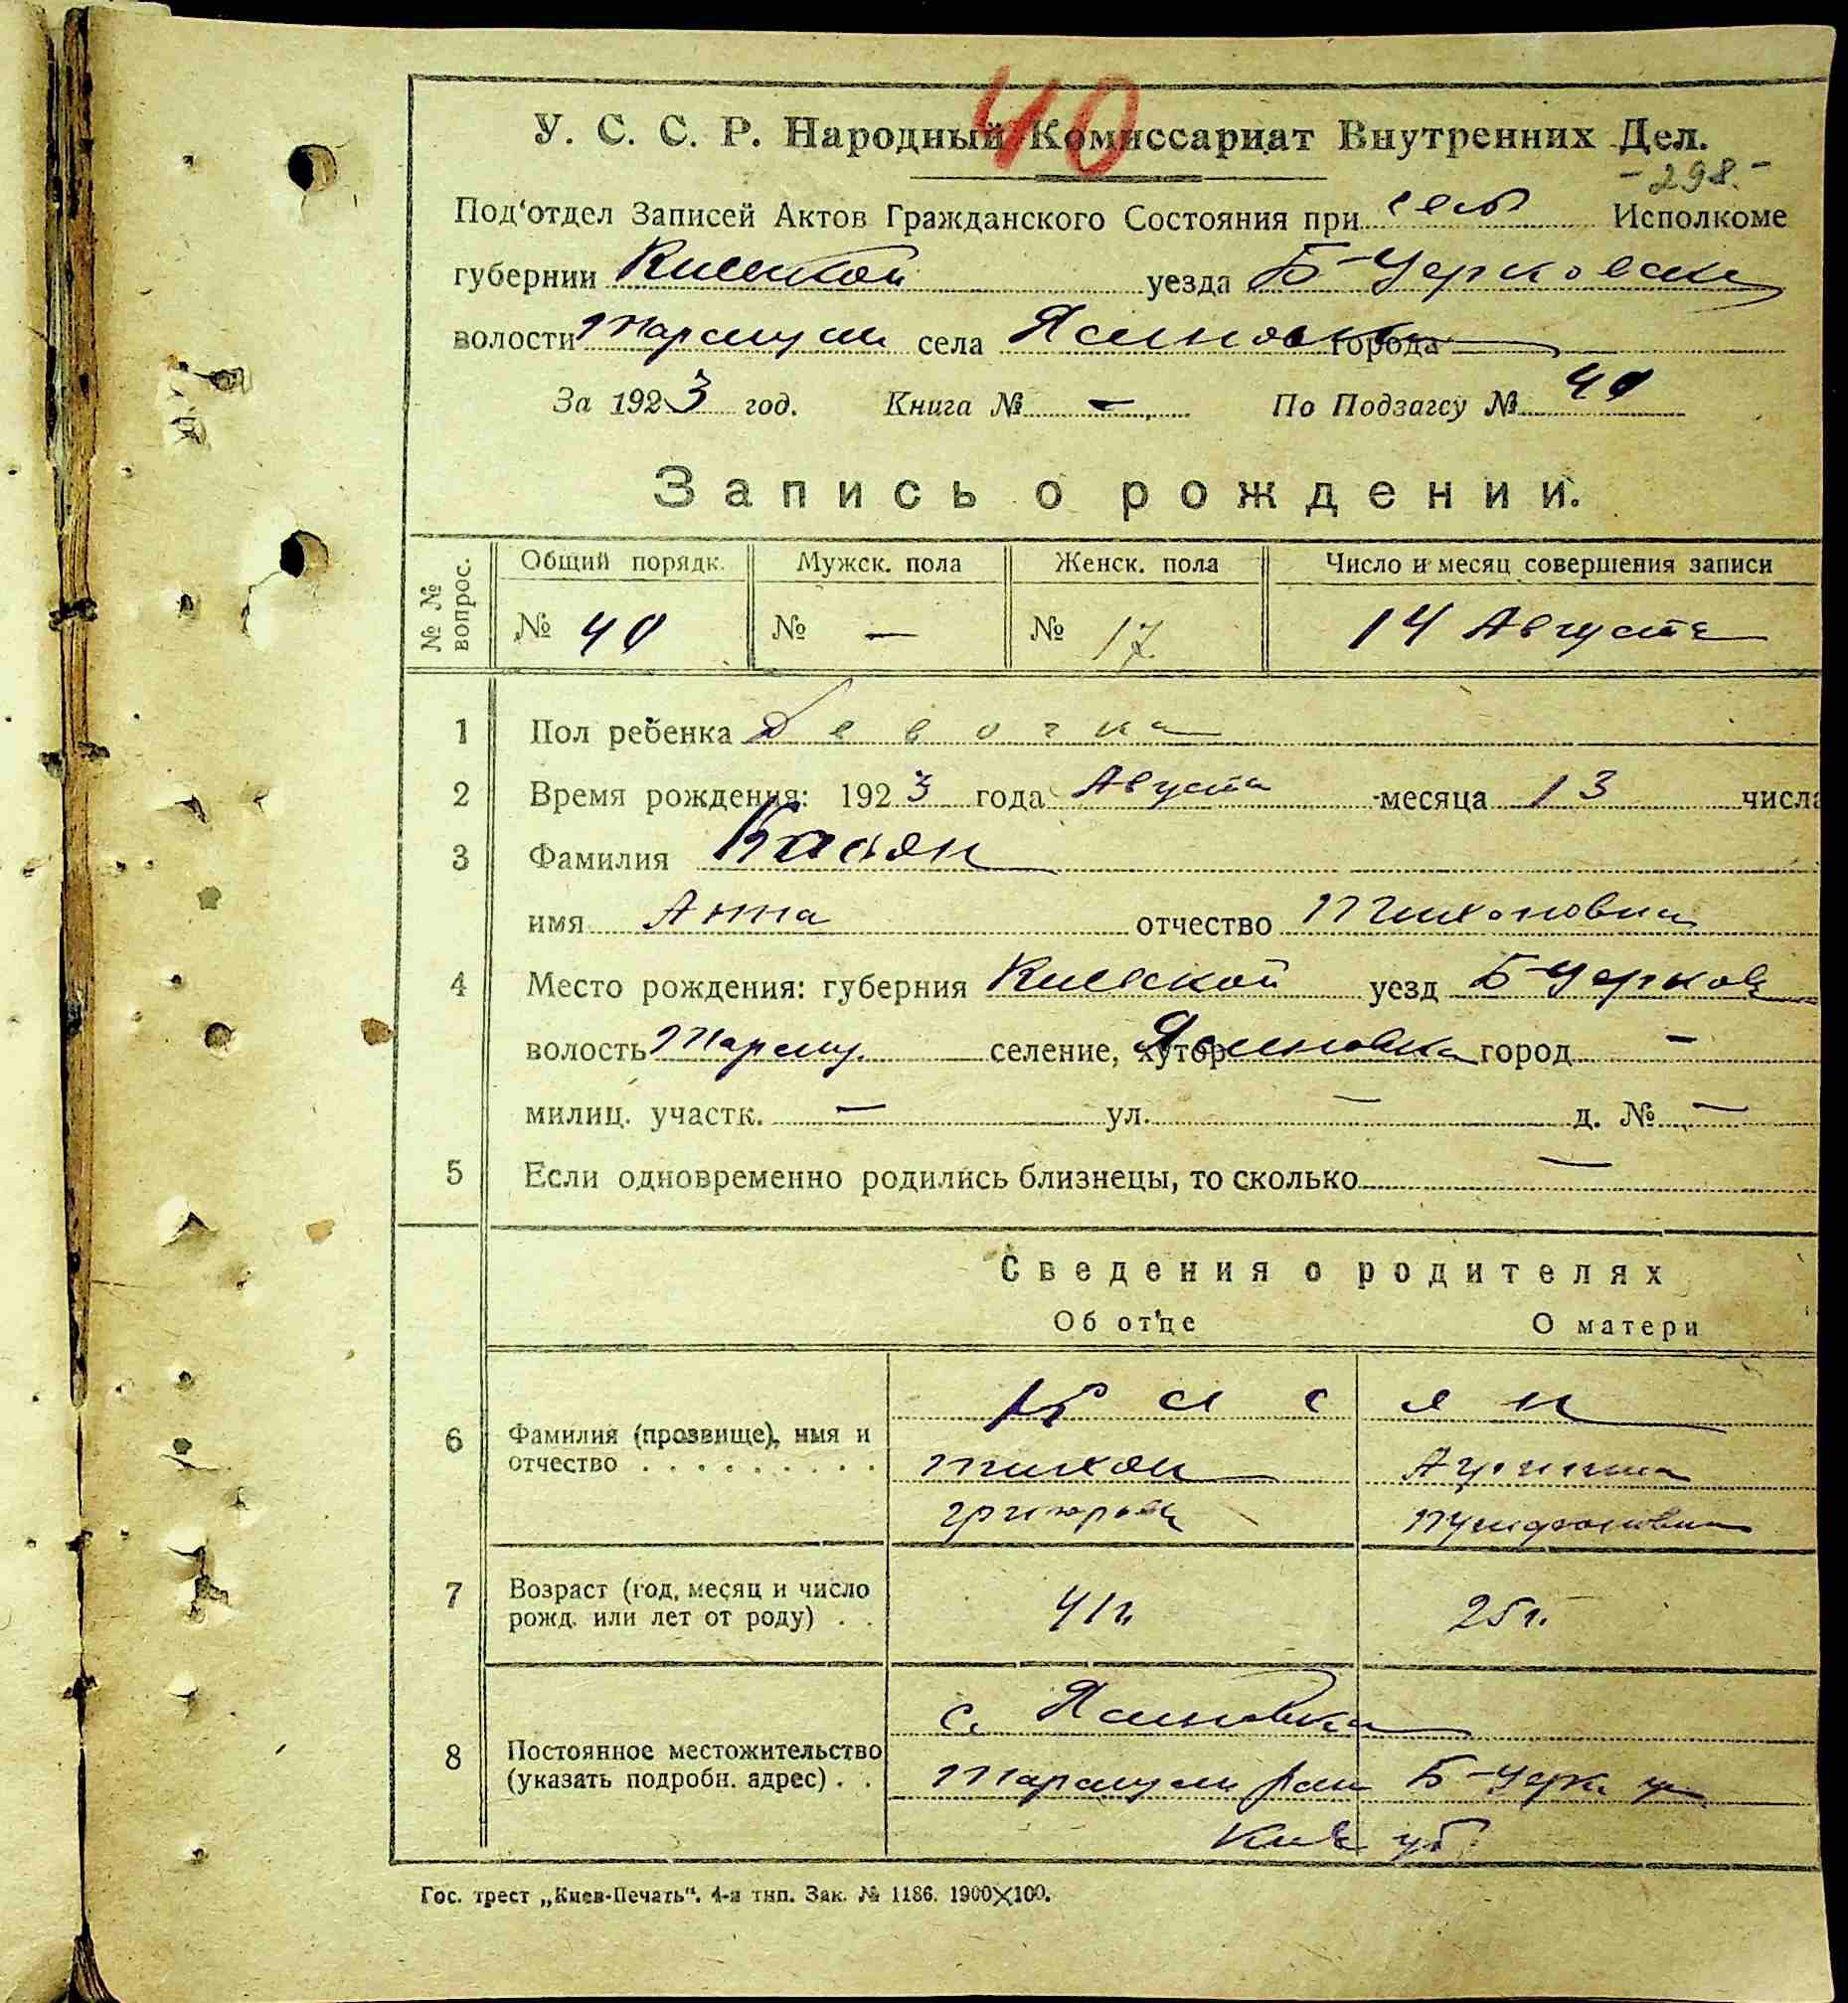 40
У. С. С. Р. Народный Комиссариат Внутренних Дел.
-298.-
Под'отдел Записей Актов Гражданского Состояния при сель Исполкоме
губернии Киевской уезда Б-Церковск
волости села Ясиновки города
За 1923 год. Книга № - По Подзагсу № 40
Запись о рождении.
№ № вопрос. Общий порядк. Мужск. пола Женск. пола Число и месяц совершения записи
№ 40 № — № 17 14 Августа
1 Пол ребенка Девочка
2 Время рождения: 1923 года Августа месяца 13 числа
3 Фамилия Касян
имя Анна отчество Тихоновна
4 Место рождения: губерния Киевской уезд Б-Церков
волость селение, хутор Ясиновка город —
милиц. участк. — ул. — д. № —
5 Если одновременно родились близнецы, то сколько —
Сведения о родителях
Об отце О матери
Касян
6 Фамилия (прозвище), имя и отчество . . . . . . . . .
Тихон
Григорьев
7 Возраст (год, месяц и число рожд. или лет от роду) . . 41г. 25г.
с. Ясиновка
8 Постоянное местожительство (указать подробн. адрес) . .
Б-Церк. у.
Киев губ.
Гос. трест „Киев-Печать“. 4-я тип. Зак. № 1186. 1900×100.